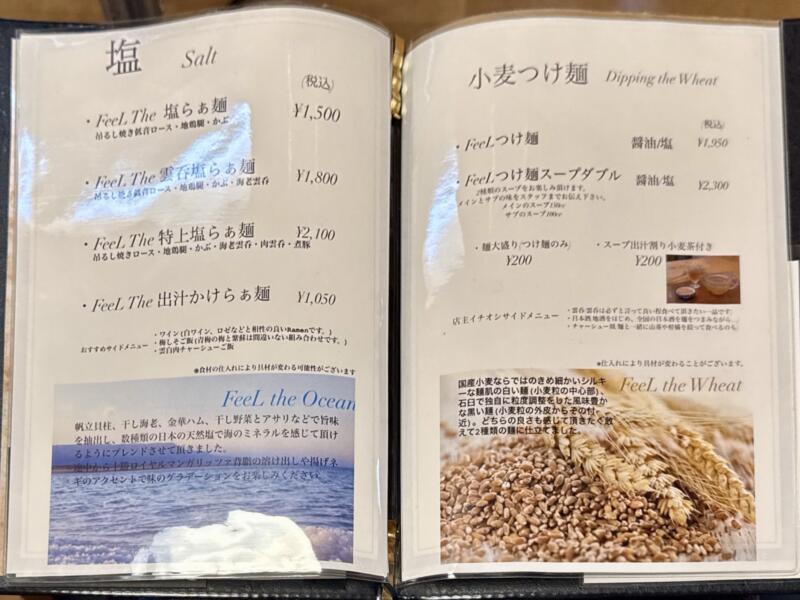 塩 Salt
(税込)
・FeeL The 塩らぁ麺 ¥1,500
吊るし焼き低音ロース・地鶏腿・かぶ
・FeeL The 雲呑塩らぁ麺 ¥1,800
吊るし焼き低音ロース・地鶏腿・かぶ・海老雲呑
・FeeL The 特上塩らぁ麺 ¥2,100
吊るし焼きロース・地鶏腿・かぶ・海老雲呑・肉雲呑・煮豚
・FeeL The 出汁かけらぁ麺 ¥1,050
おすすめサイドメニュー
・ワイン(白ワイン、ロゼなどと相性の良いRamenです。)
・梅しそご飯(青梅の梅と紫蘇は間違いない組み合わせです。)
・雲白肉チャーシューご飯
※食材の仕入れにより具材が変わる可能性がございます
FeeL the Ocean
帆立貝柱、干し海老、金華ハム、干し野菜とアサリなどで旨味
を抽出し、数種類の日本の天然塩で海のミネラルを感じて頂け
るようにブレンドさせて頂きました。
途中から十勝ロイヤルマンガリッツァ背脂の溶け出しや揚げネ
ギのアクセントで味のグラデーションをお楽しみください
小麦つけ麺 Dipping the Wheat
(税込)
・FeeLつけ麺 醤油/塩 ¥1,950
・FeeLつけ麺スープダブル 醤油/塩 ¥2,300
2種類のスープをお楽しみ頂けます。
メインとサブの味をスタッフまでお伝え下さい。
メインのスープ150cc
サブのスープ100cc
・麺大盛り(つけ麺のみ) ・スープ出汁割り小麦茶付き
¥200 ¥200
店主イチオシサイドメニュー
・雲呑/雲呑は必ずと言って良い程食べて頂きたい一品です
・日本酒/地酒をはじめ、全国の日本酒を麺をつまみながら...
※仕入れにより具材が変わることがございます。
FeeL the Wheat
国産小麦ならではのきめ細かいシルキ
ーな麺肌の白い麺(小麦粒の中心部)、
石臼で独自に粒度調整をした風味豊か
な黒い麺(小麦粒の外皮からその付
近)。どちらの良さも感じて頂きたく敢
えて2種類の麺に仕立てました。